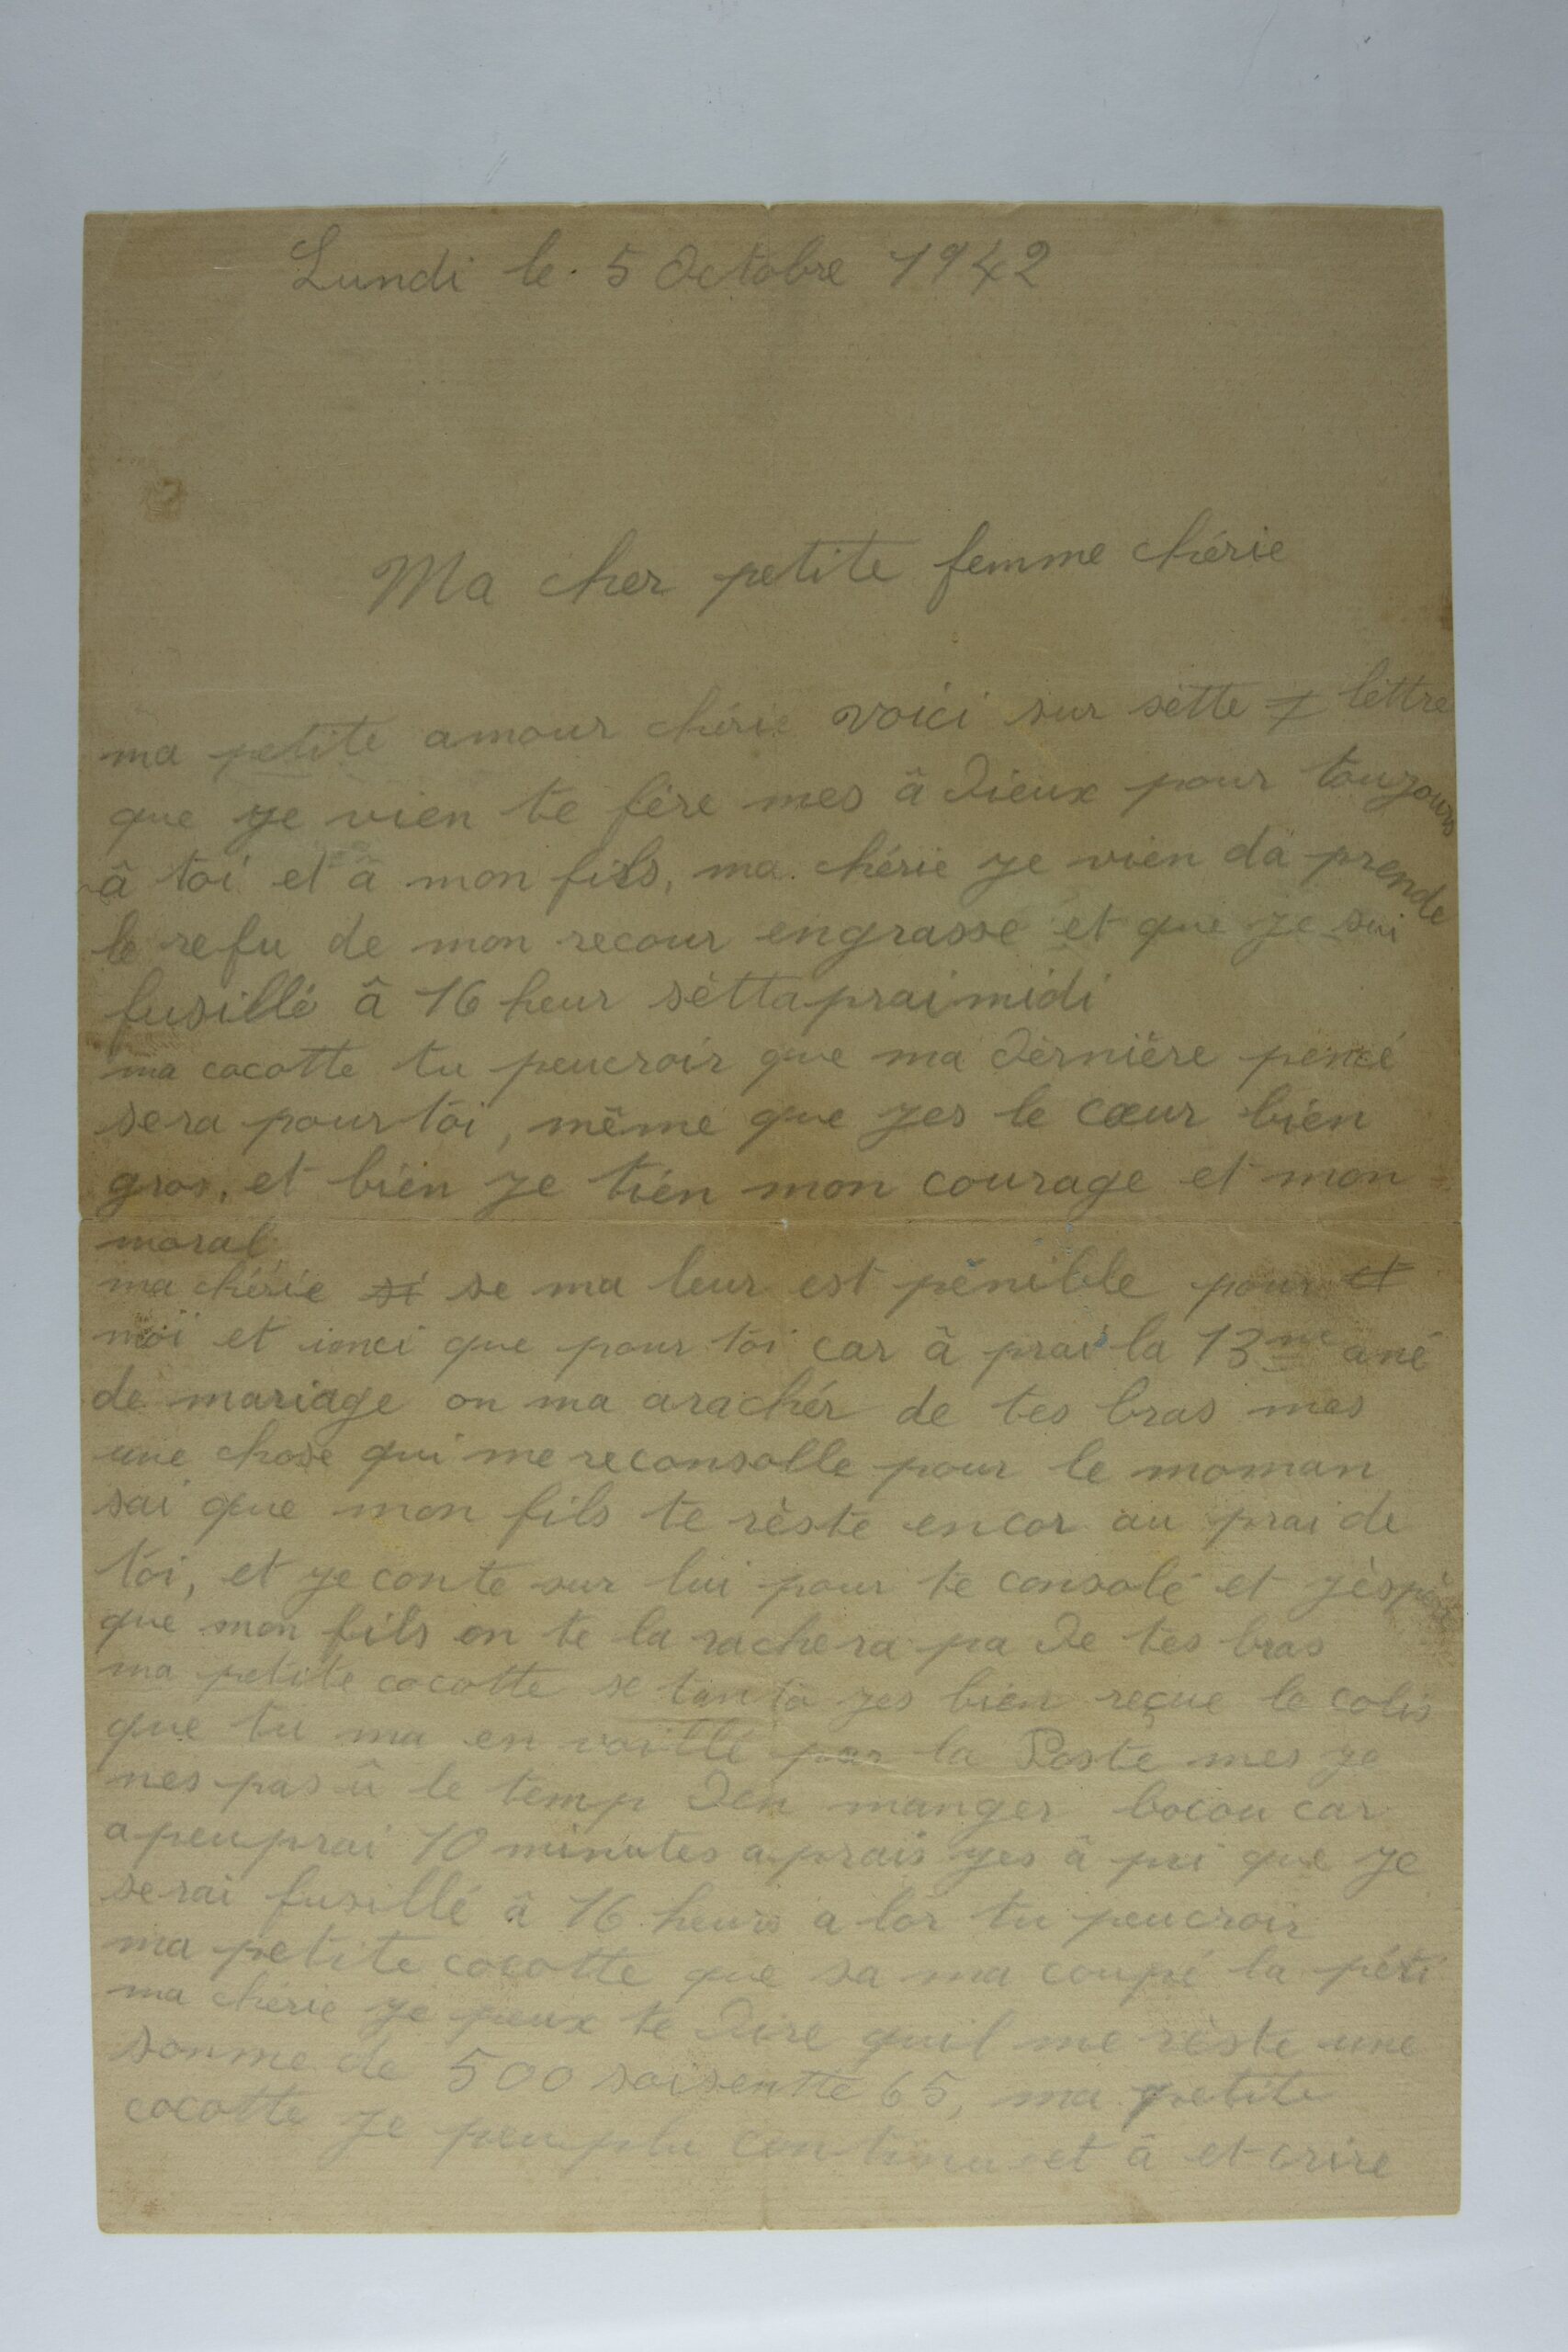 Lundi le 5 Octobre 1942
Ma cher petite femme chérie
ma petite amour chérie voici sur sètte lèttre
que ye vien te fére mes â Dieux pour toujours
â toi et â mon fils, ma chérie ye vien dâ prende
le refu de mon recour engrasse et que ye sui
fusillé â 16 heur sèttapraimidi
ma cocotte tu peucroir que ma dèrnière pencé
sera pour toi, même que yes le cœur bien
gros, et bien ye tién mon courage et mon
moral
ma chérie se ma leur est pénible pour
moi et imci que pour toi car â prai la 13me ané
de mariage on ma arachér de tes bras mes
une chose qui me reconsolle pour le moman
sai que mon fils te rèste encor au prai de
toi, et ye conte sur lui pour te consolé et yèspère
que mon fils on te la rachera pa De tes bras
ma petite cocotte se tantâ yes bien reçue le colis
que tu ma en voillé par la Poste mes ye
nes pas û le temp Den manger bocou car
apeuprai 10 minutes aprais yes â pri que ye
serai fusillé â 16 heurs a lor tu peucroir
ma petite cocotte que sa ma coupé la péti
ma chérie ye peux te Dire quil me rèste une
somme de 500 soisentte 65, ma petite
cocotte ye peu plu continu et â et crire